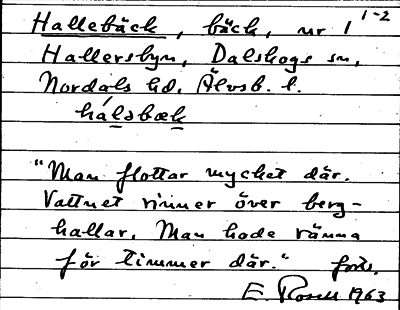 Hallebäck, bäck, nr 1 1-2
Hallersbyn, Dalskogs sn,
Nordals hd, Älvsb. l.
hálsbæk
"Man flottar mycket där.
Vattnet rinner över berg-
hallar. Man hade ränna
för timmer där." forts.
E. Rosell 1963